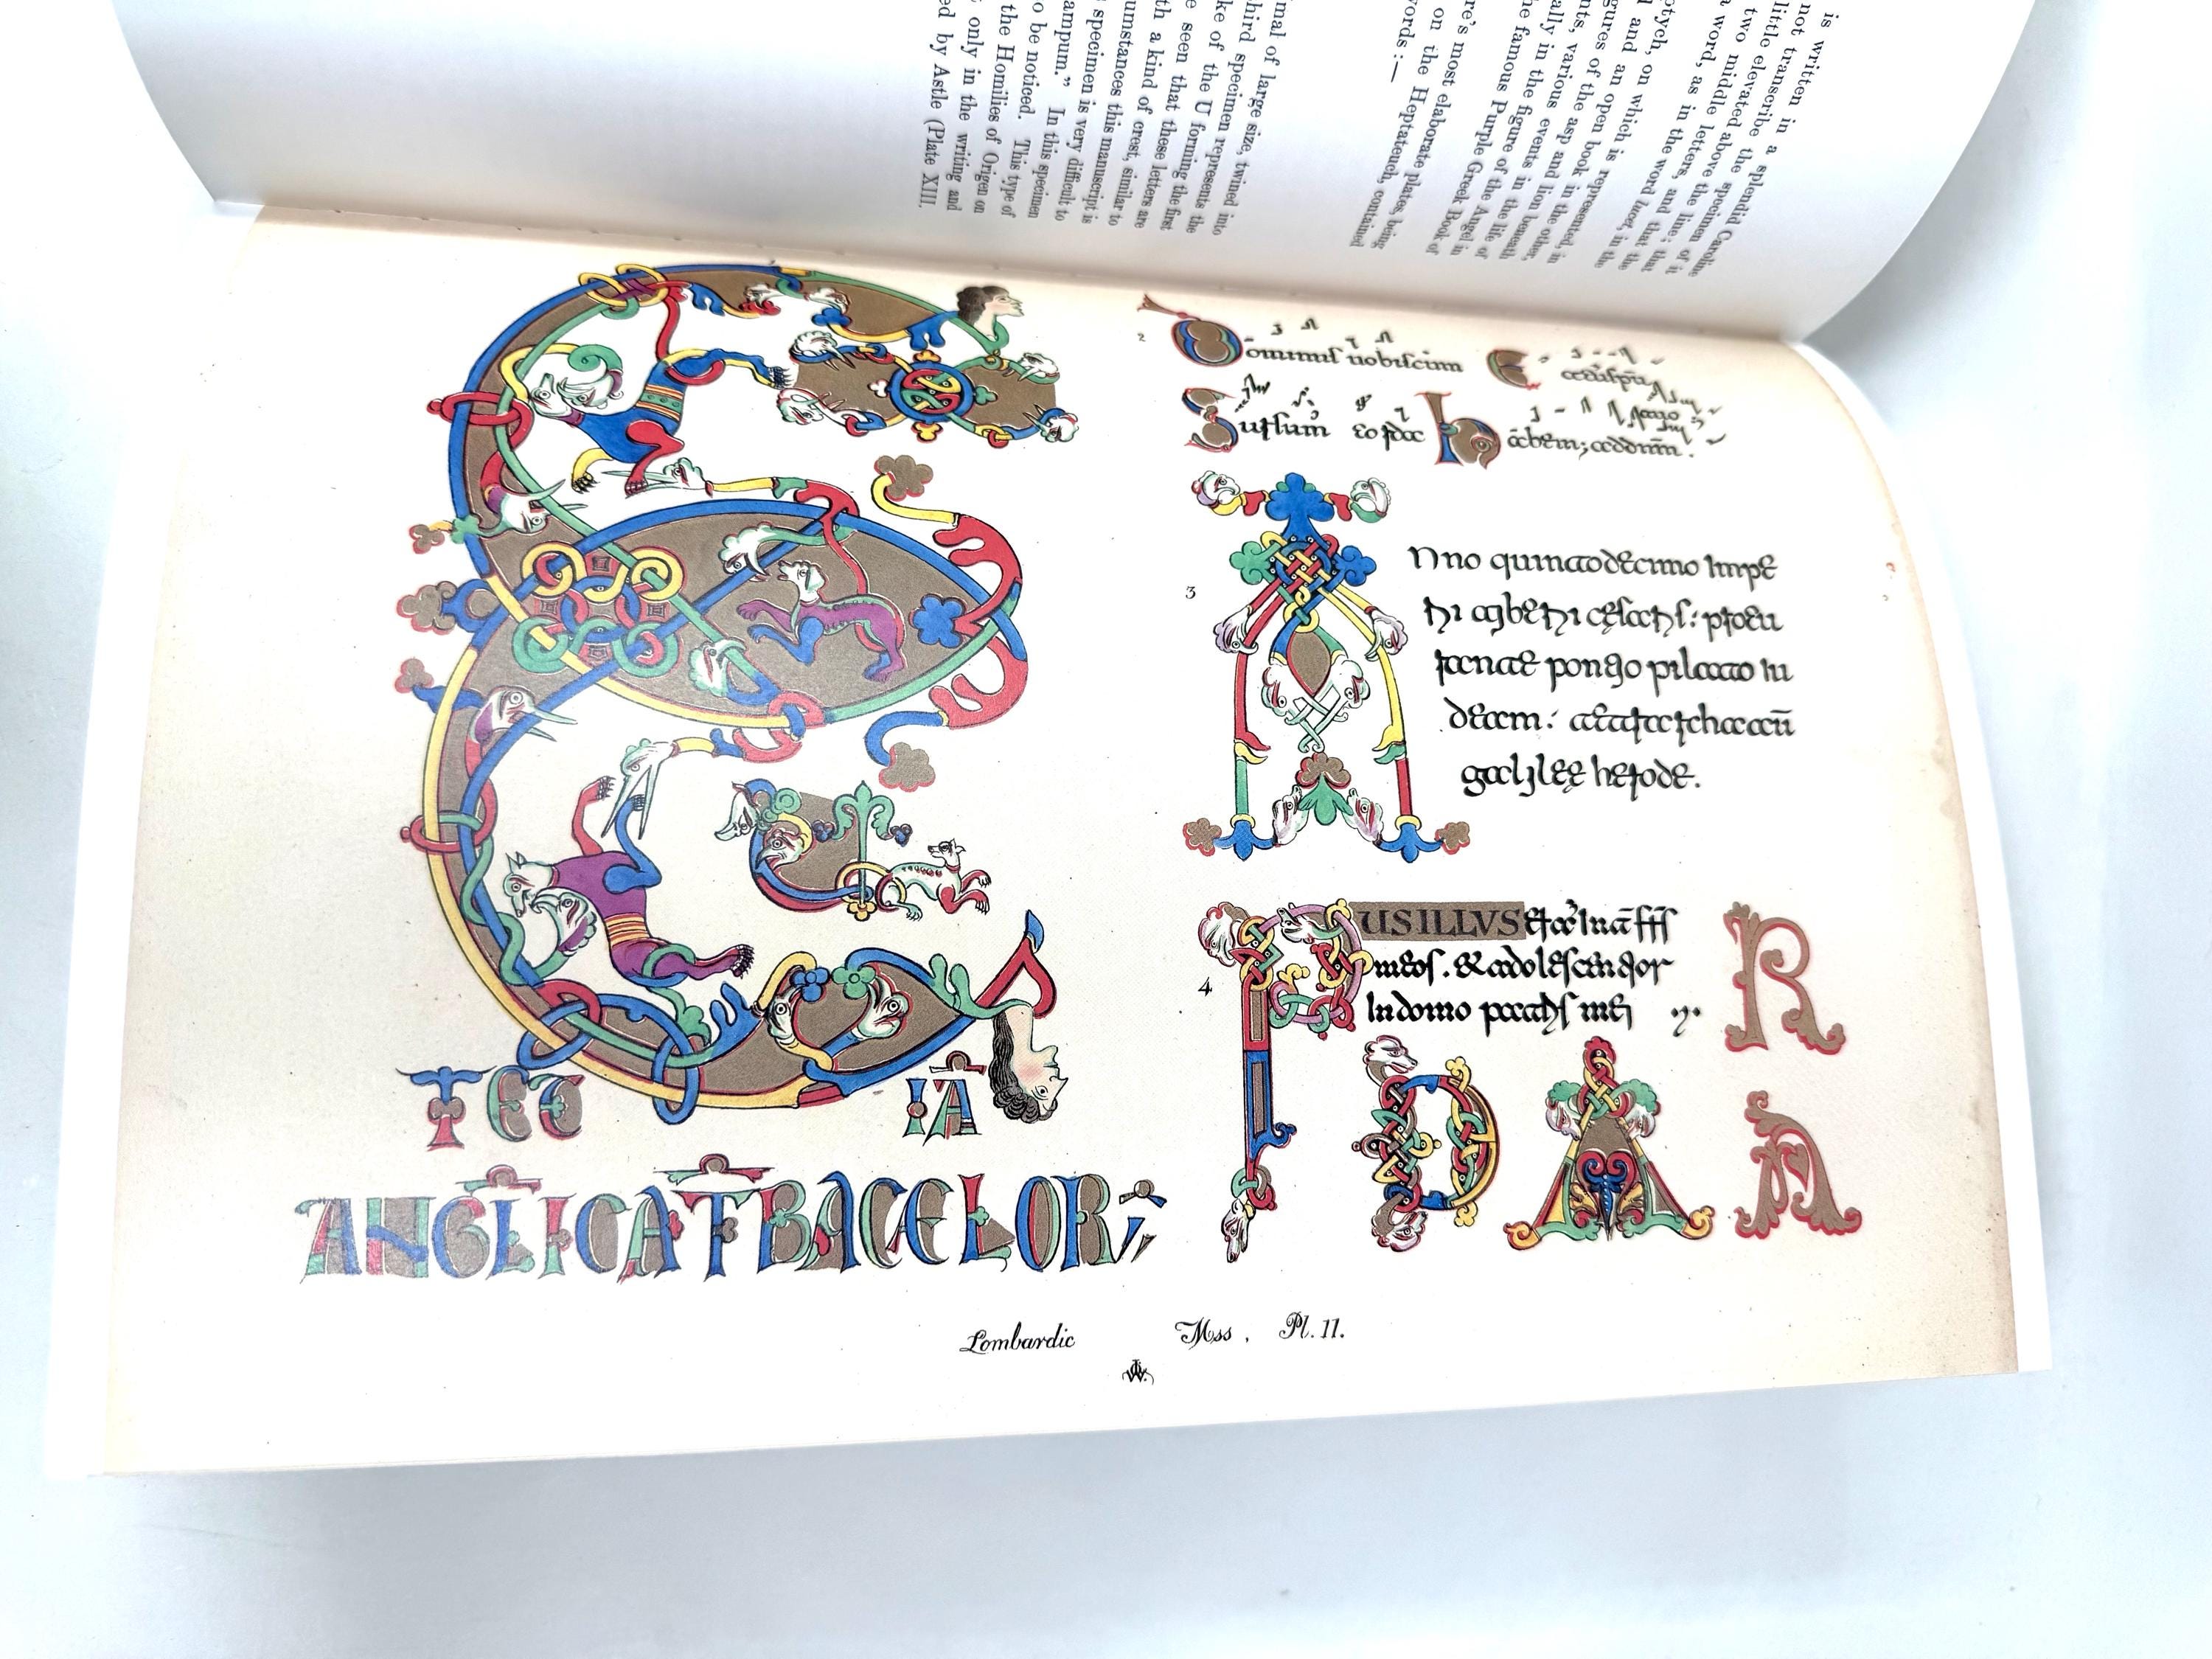 is written in a splendid Caroline
not transcribe the specimen of it
little elevated above the line; that
two middle letters, and that the
word, as in the word lucet, in the
on which is represented, in
and an open book in the other,
of the asp and lion beneath
various events in the life of
in the figure of the Angel in
famous Purple Greek Book of
most elaborate plates, being
on the Heptateuch, contained
words :—
of large size, twined into
third specimen represents the
of the U forming the first
seen that these letters are
a kind of crest, similar to
this manuscript is
specimen is very difficult to
In this specimen
to be noticed. This type of
the Homilies of Origen on
only in the writing and
by Astle (Plate XIII.
E
TEC IA
ANGLICATBACELORI
2
Dominus nobiscum Et
Sursum corda habem;
3
Anno quintodecimo Impe
rii tyberii cesaris: procu
rante pontio pilato iu
deam: tetrarcha aut
galilee herode.
4
PUSILLVS
meos. & adolescentior
In domo patris mei
R
D A
A
Lombardic Mss, Pl. 11.